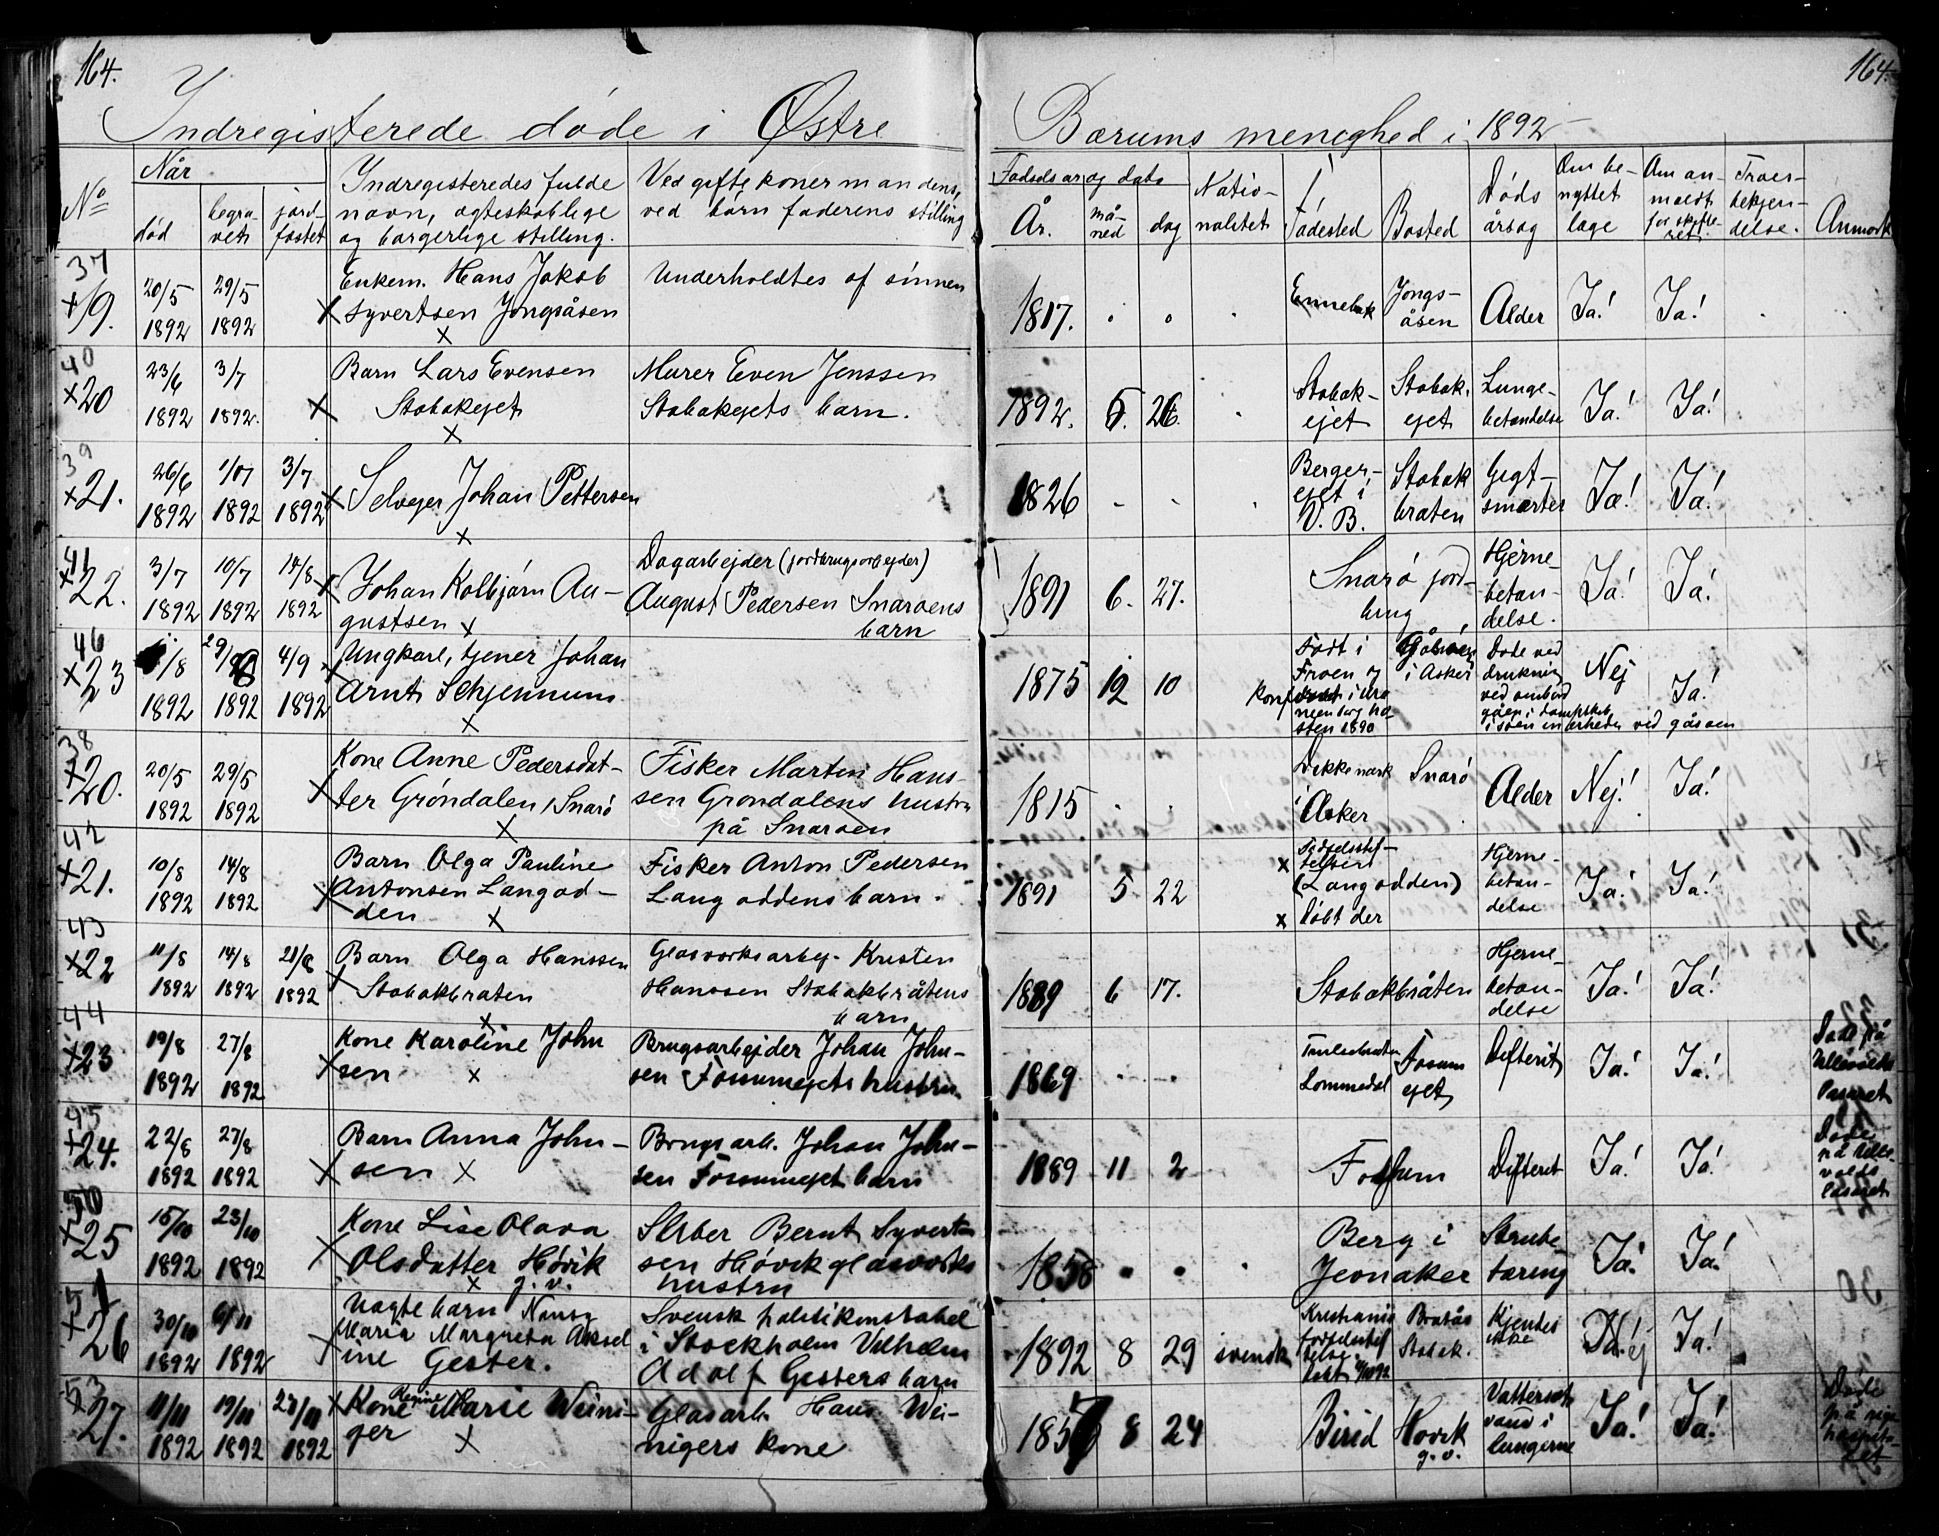 164.
164.
Indregisterede døde i Østre Bærums menighed i 1892
No
Når
død
begra-
vet
jord-
fæstet
Indregisteredes fulde
navn, ægteskablige
og borgerlige stilling.
Ved gifte koner mandens,
ved børn faderens stilling
Fødselsår og dato
År.
må-
ned
dag
Natio-
nalitet
Fødested
Bosted
Døds
årsag
Om be-
nyttet
læge
Om an-
meldt
for skifte-
ret
Troes-
bekjen-
delse.
Anmerk
37
x 19.
20/5
1892
29/5
1892
Enkem. Hans Jakob
x Syvertsen Jongsåsen
x
Underholdtes af sønnen
1817.
Ennebak
Jongs-
åsen
Alder
Ja!
Ja!
40
x 20
23/6
1892
3/7
1892.
Barn Lars Evensen
x Stabakejet
x
Murer Even Jenssen
Stabakejets barn.
1892. 5. 26.
Stabak-
ejet
Stabak.
ejet
Lunge-
betændelse
Ja!
Ja!
39
x 21.
26/6
1892
1/07
1892
3/7
1892
x Selvejer Johan Pettersen
x
1826
Berger-
ejet i
V. B.
Stabak
braten
Gigt-
smærter
Ja!
Ja!
41
x 22.
3/7
1892
10/7
1892
14/8
1892
x Johan Kolbjørn Au-
gustsen x
Dagarbejder (jordbrugsarbejder)
August Pedersen Snarøens
barn
1891 6. 27.
Snarø jord-
brug
Hjerne-
betæn-
delse.
Ja!
Ja!
46
x 23
/8
1892
29/8
1892
4/9
1892
x Ungkarl, tjener Johan
Arnt Schjennum
x
1875 12 10
Født i
Froen og
konf
sten 1890
i Asker
Døde ved
drukning
ved ombord
gåen i dampskib
ved gåsøen
Nej
Ja!
38
x 20.
20/5
1892
29/5
1892
Kone Anne Pedersdat-
x ter Grøndalen, Snarø
x
Fisker Martin Hans-
sen Grøndalens hustru
på Snarøen
1815
i
Asker
Snarø
Alder
Nej!
Ja!
42
x 21.
10/8
1892
14/8
1892
Barn Olga Pauline
x Antonsen Langod-
den x
Fisker Anton Pedersen
Langoddens barn.
1891 5 22
x Fødselsstif-
telsen
(Langodden)
x døbt der
Hjerne-
betæn-
delse
Ja!
Ja!
43
x 22
11/8
1892
14/8
1892
21/8
1892
Barn Olga Hanssen
x Stabakbraten
x
Glasværksarbej. Kristen
Hanssen Stabakbråtens
barn
1889 6 17.
Stabakbråten
Hjerne-
betæn-
delse
Ja!
Ja!
44
x 23
19/8
1892
27/8
1892
Kone Karoline John
x sen x
Brugsarbejder Johan John-
sen Fossumejets hustru.
1869
Lommedal
Fossum
ejet
Difterit
Ja!
Ja!
Døde på
Ullevolds
Lasaret
45
x 24.
22/8
1892
27/8
1892
Barn Anna John-
x sen x
Brugsarb. Johan John-
sen Fossumejet barn
1889 11 2
Fossum
Difterit
Ja!
Ja!
Døde
på Ulle-
volds
lasaret
50
x 25
15/10
1892
23/10
1892
Kone Lise Olava
x Olsdatter Høvik
x g. v.
Sliber Bernt Syvert-
sen Høvik glasværks
hustru
1858
Berg i
Jevnaker
Strube-
tæring
Ja!
Ja!
51
x 26
30/10
1892
6/11
1892
Uægte barn Nancy
x Maria Margreta Aksel
ine Gester.
Svensk politikonstabel
i Stockholm Vilhelm
Adolf Gesters barn
1892 8 29 svensk
Kristiania
fødselsstif
telse.
Bratås
Stabak.
Kjendes
ikke
Nej
Ja!
53
x 27.
11/11
1892
19/11
1892
23/11
1892
x Kone Marie Weini-
ger x
Glasarb. Hans Wei-
nigers kone
1857 8 24
Birid
Høvik
g. v.
Vattersot
vand i
lungerne
Ja!
Ja!
Døde
på rigs
hospita-
let